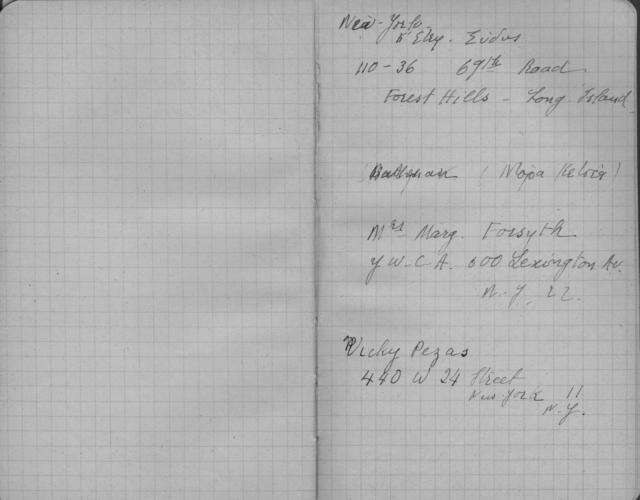 New-York
110-36 69th Road
Forest Hills - Long Island
Mrs Marg. Forsyth
Y W-C A. 600 Lexington Av.
N.Y. 22.
Vicky Pezas
440 W 24 Street
New York 11
N.Y.